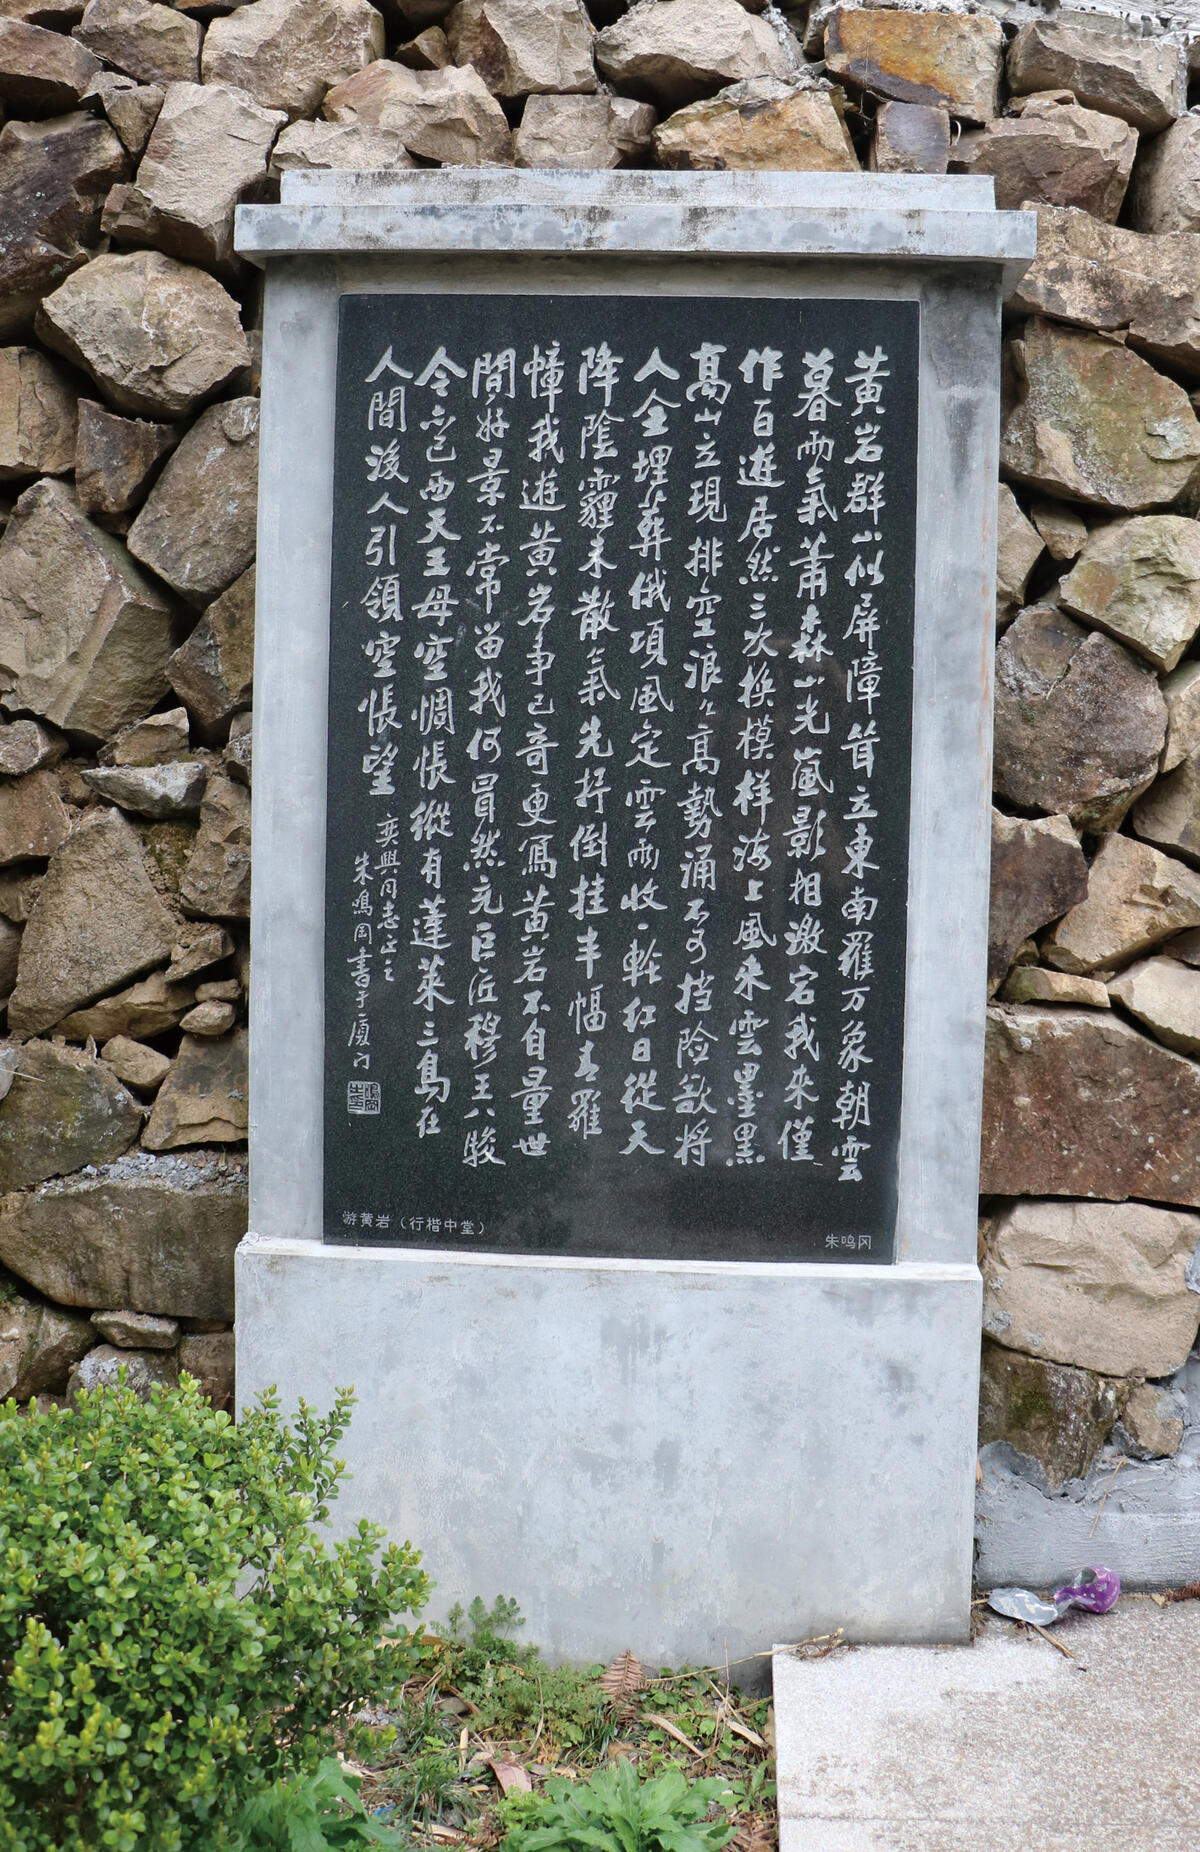 黄岩群山似屏障耸立東南羅万象朝雲
暮雨氣蕭森山光嵐影相激宕我來僅
作百遊居然三次换模样海上風来雲墨黑
髙山立現排空浪浪髙勢涌不可挡险欲将
人全埋葬俄頃風定雲雨收一輪红日從天
降陰霾未散氣先抒倒挂半幅青羅
幛我遊黄岩事已奇更寫黄岩不自量世
間好景不常留我何冒然充巨匠穆王八駿
令亦已西天王母空惆怅縱有蓬莱三島在
人間後人引領空悵望
奕興同志正之
朱鳴岡書于厦门
游黄岩（行楷中堂）
朱鸣冈